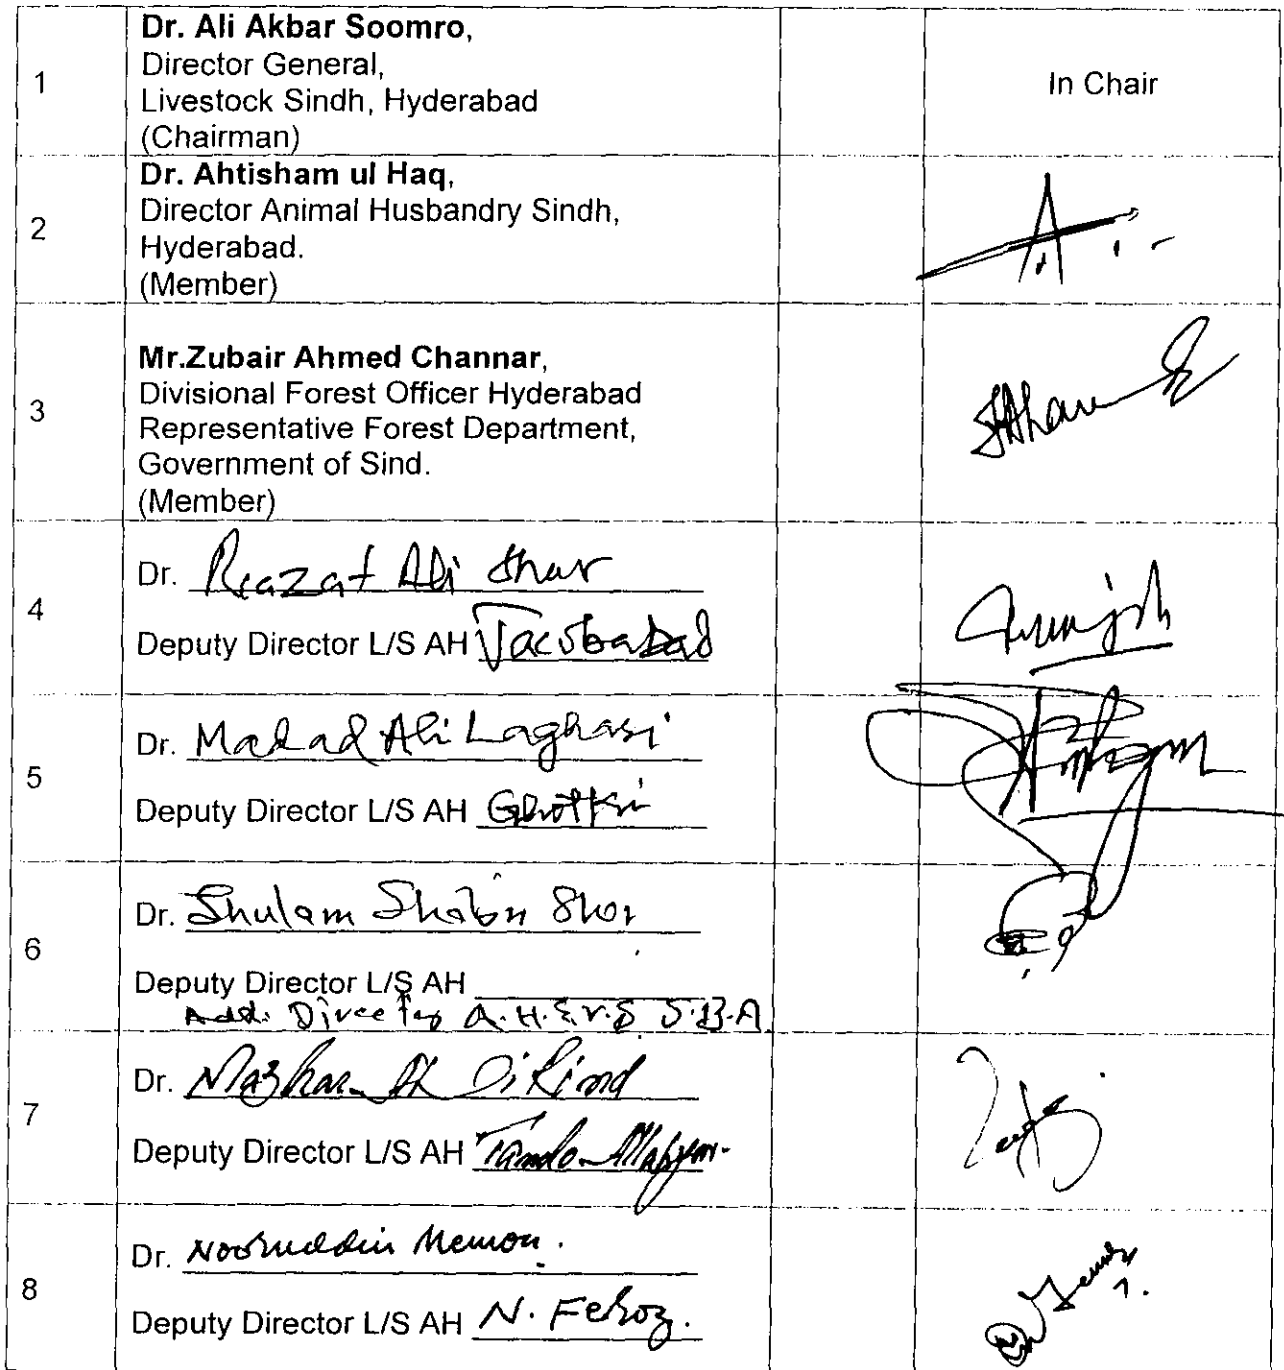 1
Dr. Ali Akbar Soomro,
Director General,
Livestock Sindh, Hyderabad
(Chairman)
In Chair
2
Dr. Ahtisham ul Haq,
Director Animal Husbandry Sindh,
Hyderabad.
(Member)
3
Mr.Zubair Ahmed Channar,
Divisional Forest Officer Hyderabad
Representative Forest Department,
Government of Sind.
(Member)
4
Dr. Riazat Ali Shar
Deputy Director L/S AH Jacobabad
5
Dr. Madad Ali Laghari
Deputy Director L/S AH Ghotki
6
Dr. Ghulam Shabir Shar
Deputy Director L/S AH
Add: Director A.H. S.B.A
7
Dr. Mazhar Ali Rind
Deputy Director L/S AH Tando Allahyar.
8
Dr. Nooruddin Memon.
Deputy Director L/S AH N. Feroz.